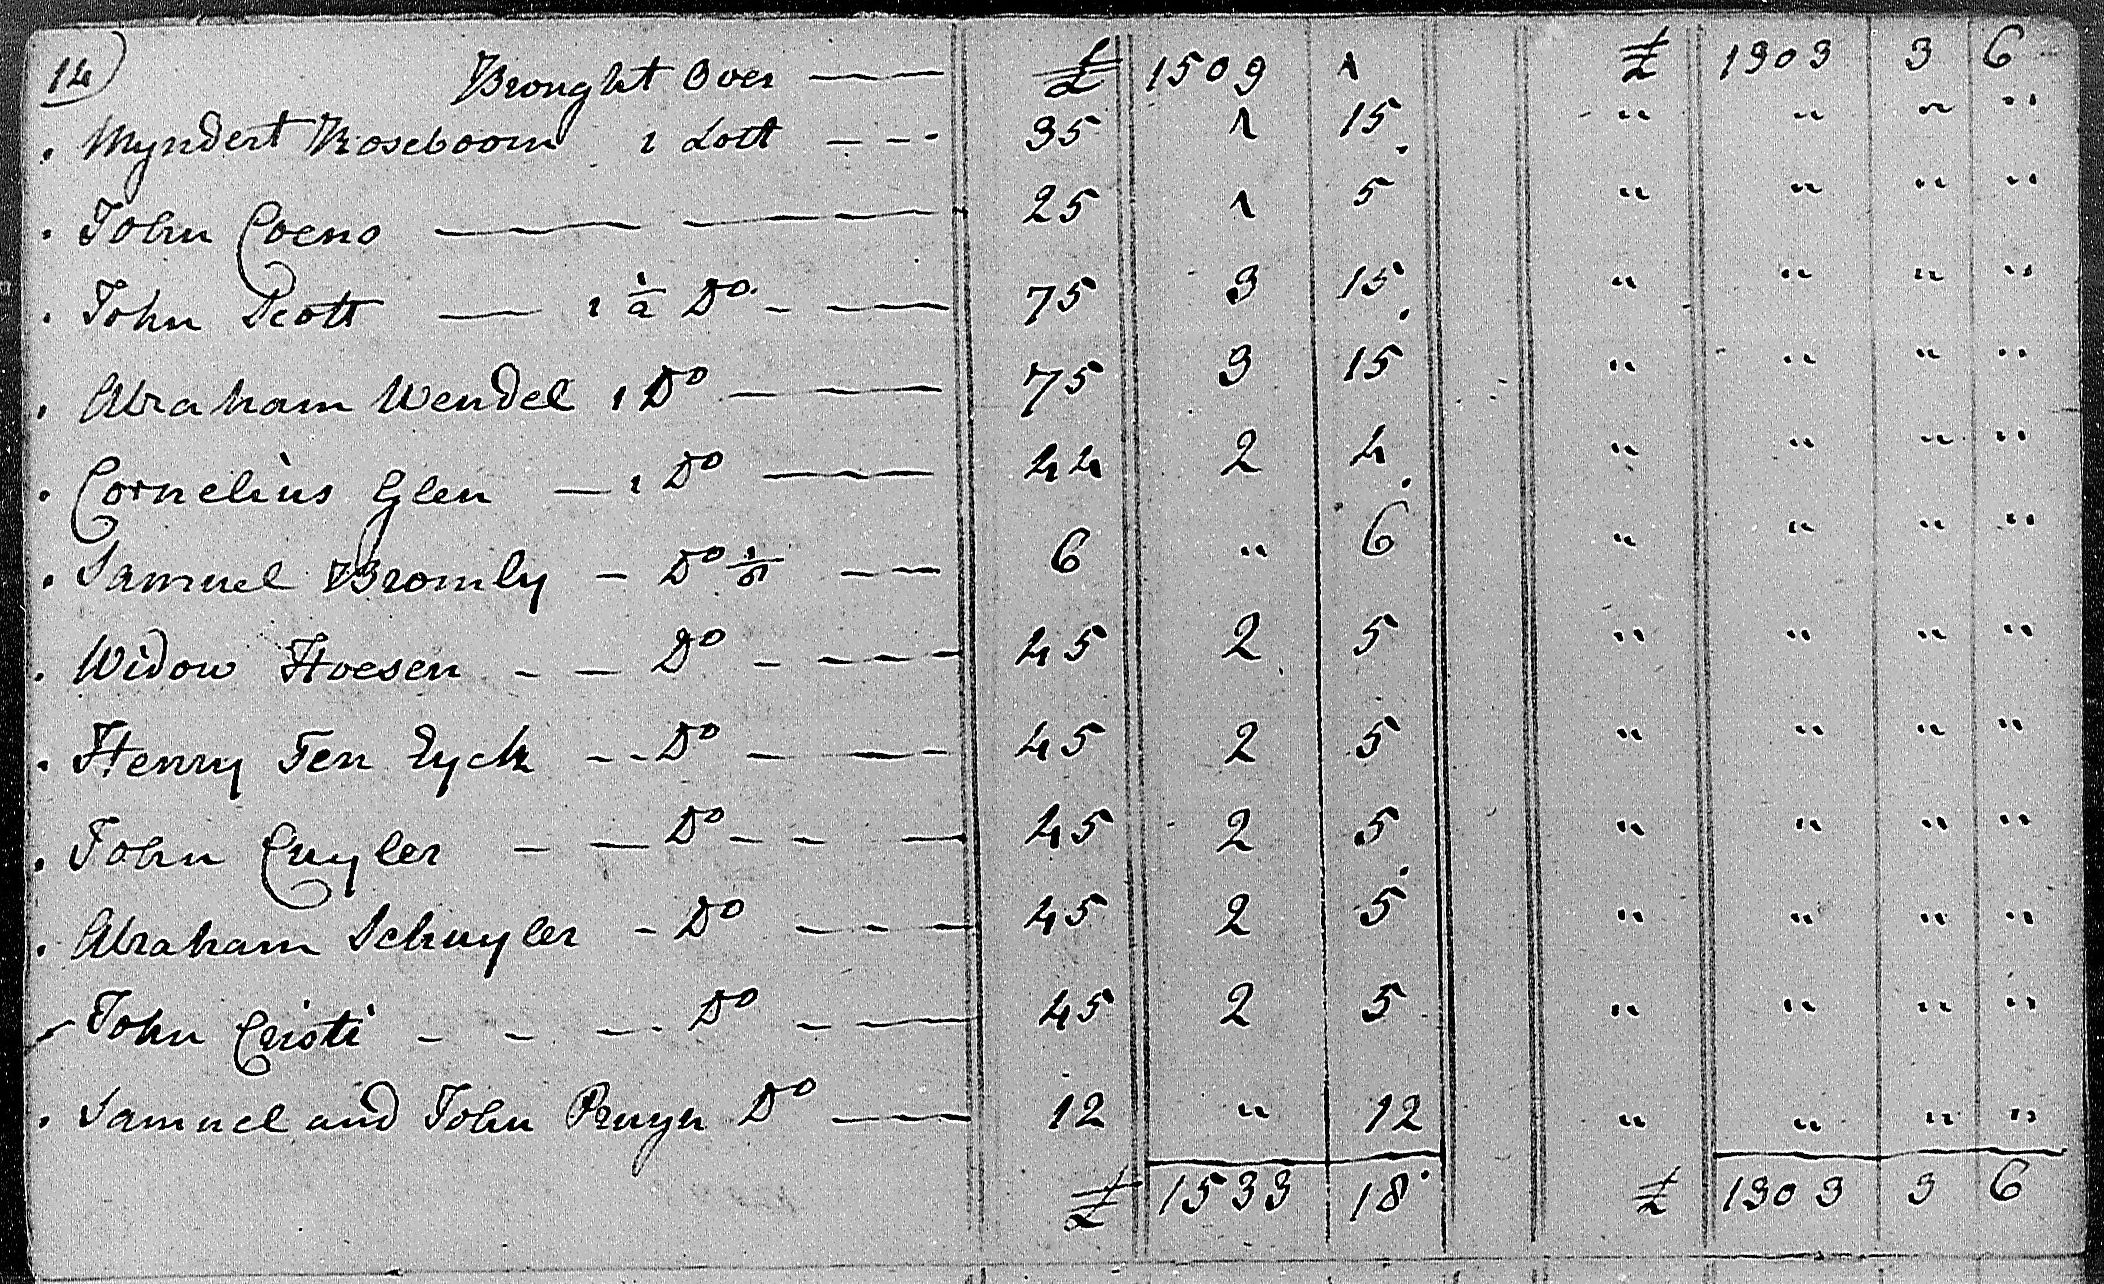 14) Brought Over £ 1509 1 £ 1303 3 6
Myndert Roseboom 1 Lott - - - 35 1 15 " " " "
John Coens 25 1 5 " " " "
John Scott 1 1/2 Do. 75 3 15 " " " "
Abraham Wendel 1 Do 75 3 15 " " " "
Cornelius Glen 1 Do 44 2 4 " " " "
Samuel Bromly Do 1/2 6 " 6 " " " "
Widow Hoesen Do 45 2 5 " " " "
Henry Ten Eyck Do 45 2 5 " " " "
John Cuyler Do 45 2 5 " " " "
Abraham Schuyler Do 45 2 5 " " " "
John Cristi Do 45 2 5 " " " "
Samuel and John Pruyn Do 12 " 12 " " " "
£ 1533 18 £ 1303 3 6